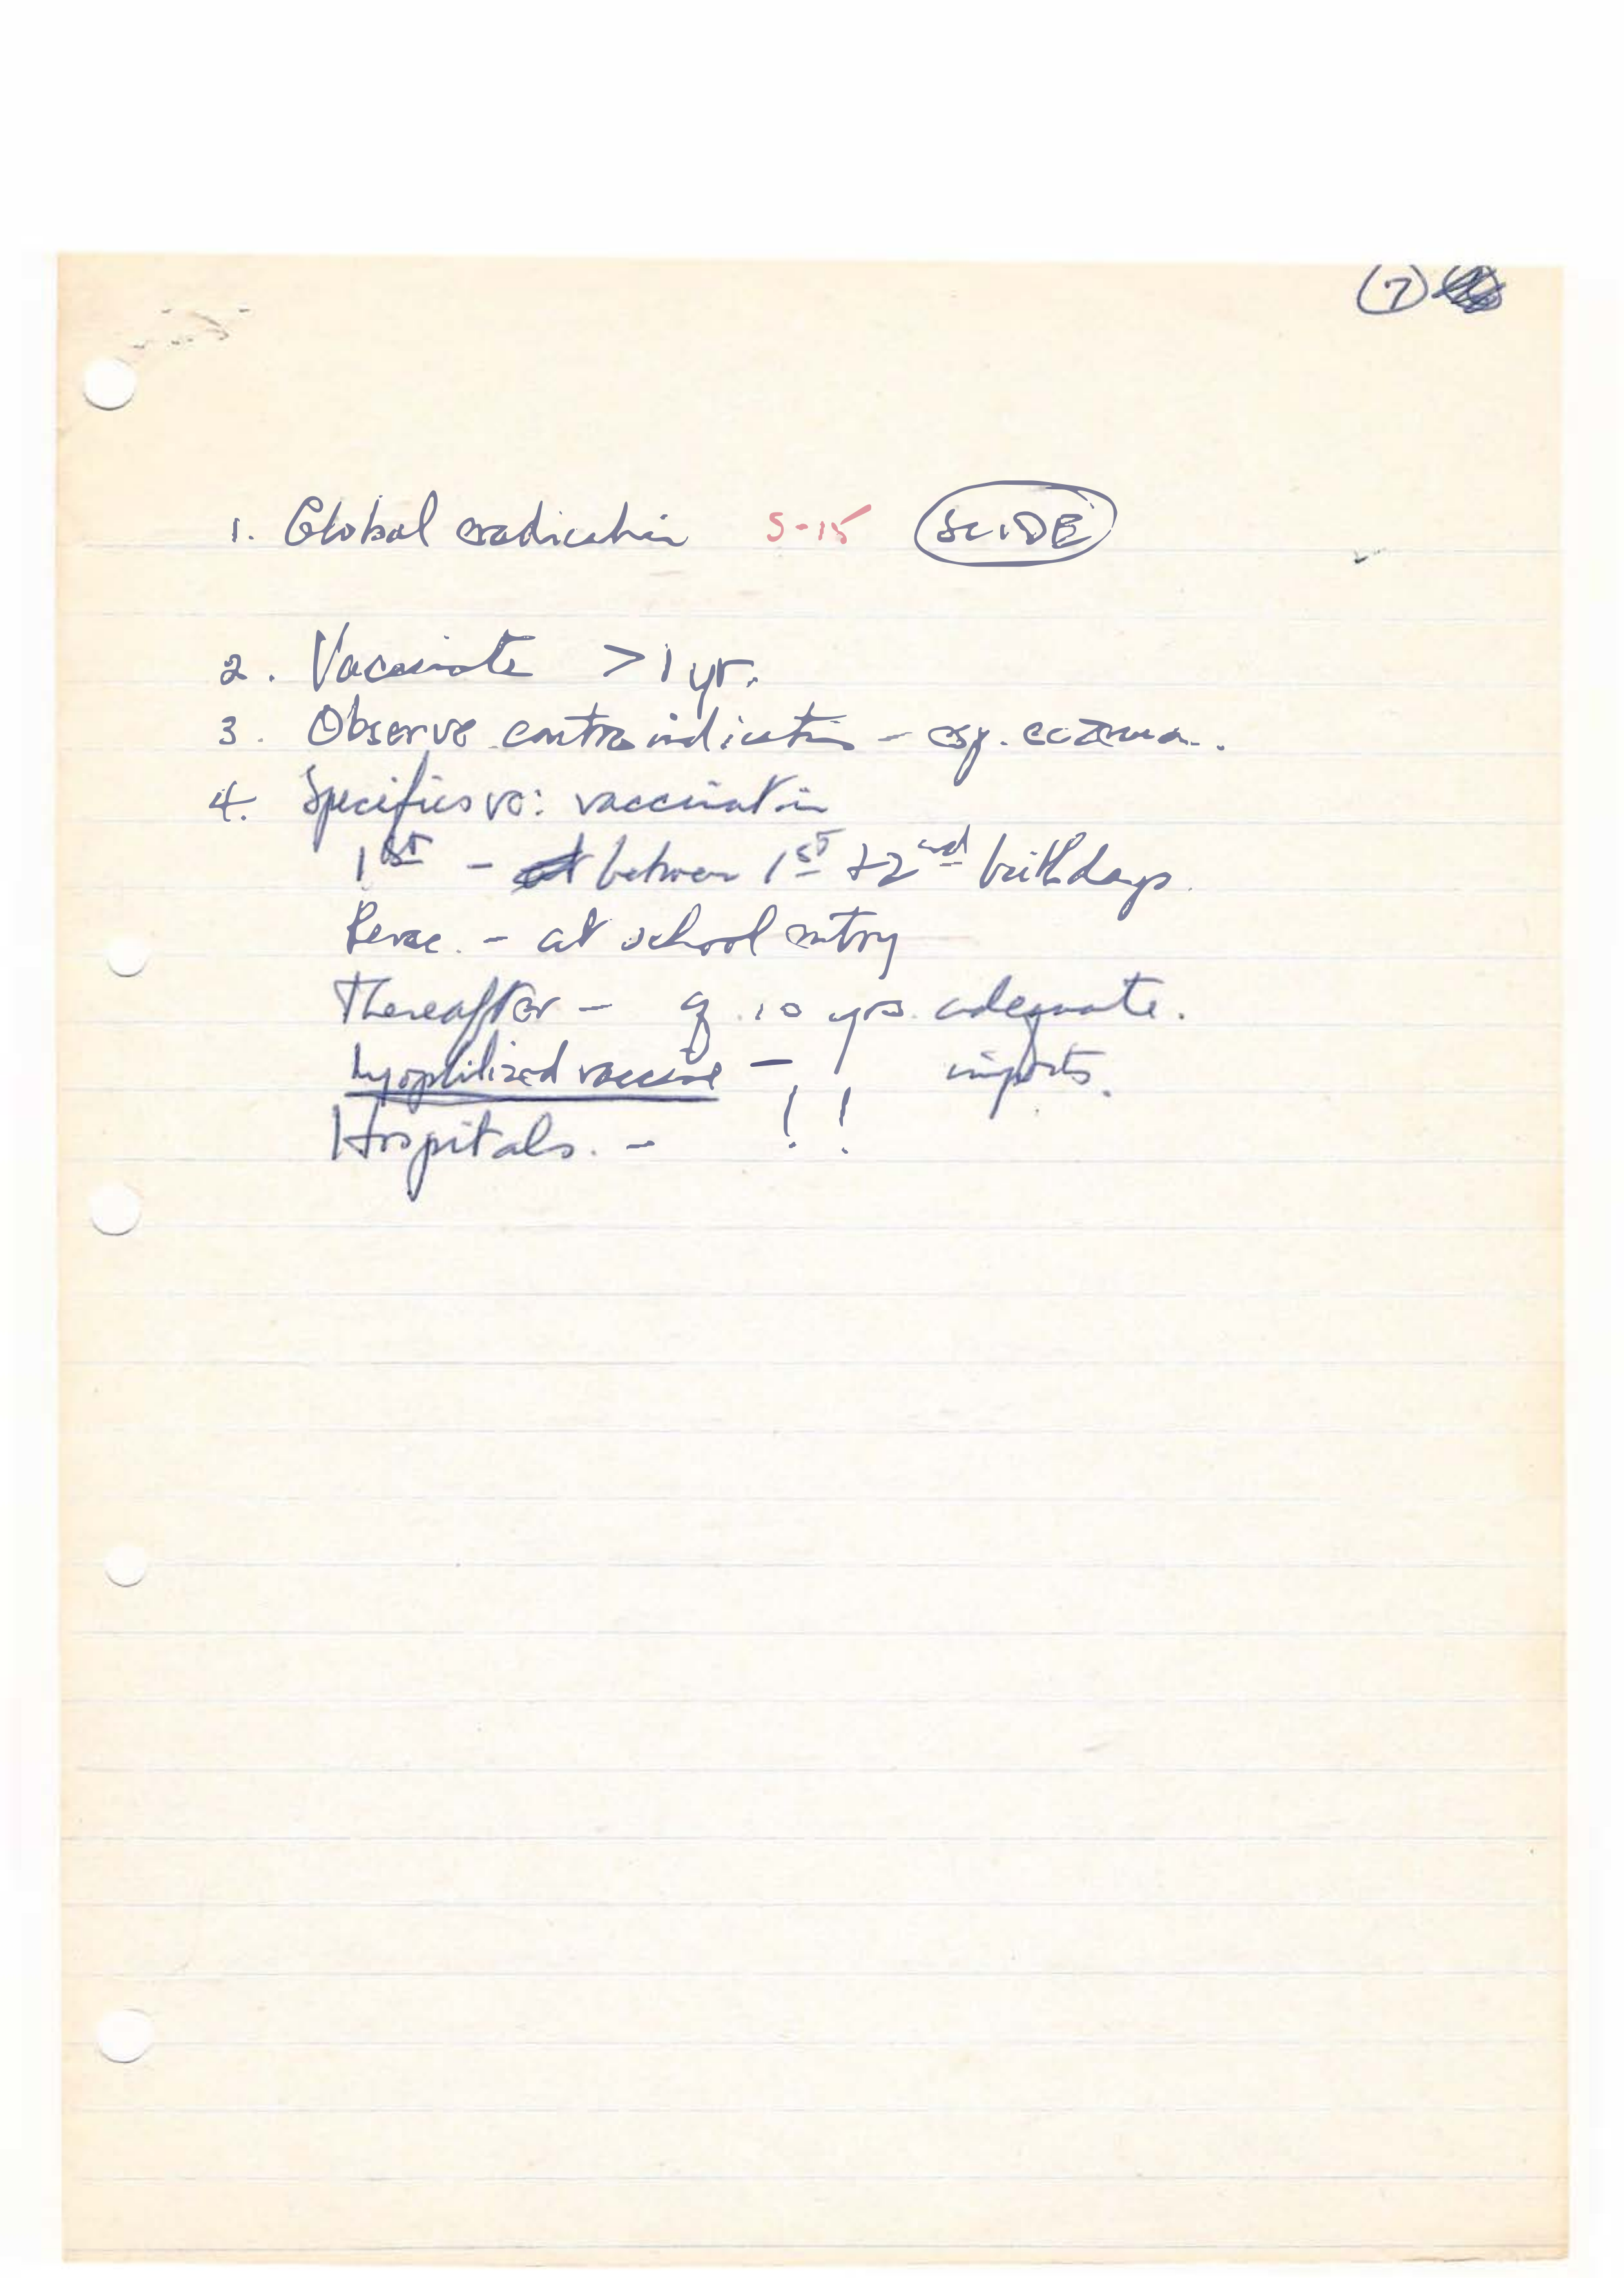 7
1. Global eradication S-15 SLIDE
2. Vaccinate > 1 yr.
3. Observe contraindication - esp. eczema..
4. Specifics re: vaccination
1st - between 1st + 2nd birthdays.
Revac. - at school entry
Thereafter - q 10 yrs. adequate.
Lyophilized vaccine - imports.
Hospitals. - ! !